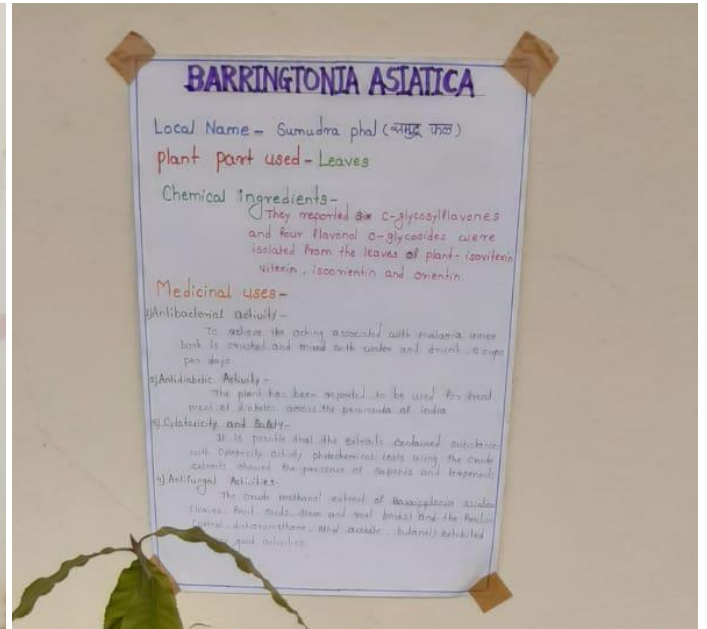 BARRINGTONIA ASIATICA
Local Name - Sumudra phal (समुद्र फळ)
plant part used - Leaves
Chemical ingredients -
They reported six C-glycosylflavones
and four flavonol O-glycosides were
isolated from the leaves of plant - isovitexin
vitexin, isoorientin and orientin.
Medicinal uses -
1) Antibacterial activity -
To relieve the aching associated with malaria inner
bark is crushed and mixed with water and drunk, cups
per days.
2) Antidiabetic Activity -
The plant has been reported to be used for treat
ment of diabetes across the peninsula of india
3) Cytotoxicity and Safety -
It is possible that the extracts contained substance
with Cytotoxity activity phytochemical tests using the crude
extracts showed the presence of Saponis and terpenoids
4) Antifungal Activities -
The crude methanol extract of Barringtonia asiatica
(leaves, fruit, seeds, stem and root barks) and the
dichloromethane, acetate, butanol) exhibited
good activities.